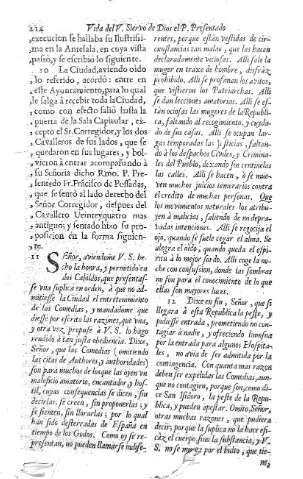 224 Vida del V. Siervo de Dios el P. Presentado
execucion se hallaba su Ilustrissi-
ma en la Antesala, en cuya vista
passò, y se escribiò lo siguiente.
10 La Ciudad, aviendo oido
lo referido, acordò: entre en
este Ayuntamiento, para lo qual
le salga à recebir toda la Ciudad,
como con efecto saliò hasta la
puerta de la Sala Capitular, ex-
cepto el Sr. Corregidor, y los dos
Cavalleros de sus lados, que se
quedaron en sus lugares, y bol-
vieron à entrar acompañando à
su Señoria dicho Rmo. P. Pre-
sentado Fr. Francisco de Possadas,
que se sentò al lado derecho del
Señor Corregidor, despues del
Cavallero Veintequatro mas
antiguo; y sentado hizo su pro-
posicion en la forma siguien-
te.
11 Señor, aviendome V. S. he-
cho la honra, y permitido en
dos Cabildos, que presentas-
se una suplica en orden, à que no ad-
mitiesse la Ciudad el entretenimiento
de las Comedias, y mandadome que
diesse por escrito las razones, que una,
y otra vez propuse à V. S. lo hago
rendido à tan justa obediencia. Dixe,
Señor, que las Comedias (omitiendo
las citas de Authores, y authoridades)
son para muchos de bosque las oyen un
maleficio amatorio, encantador, y hos-
til, cuyas consequencias se dicen, sin
decirlas: se creen, sin proponerlas; y
se sienten, sin llorarlas; por lo qual
han sido desterradas de España en
tiempo de los Godos. Como oy se re-
presentan, no pueden llamarse indife-
rentes, porque estàn vestidas de cir-
cunstancias tan malas, que las hacen
declaradamente viciosas. Alli sale la
muger en traxe de hombre, desfraz
prohibido. Alli se profanan los avitos,
que vistieron los Patriarchas. Alli
se dan lecciones amatorias. Alli se es-
tàn ociosas las mugeres de la Republi-
ca, faltando al recogimiento, y cuyda-
do de sus casas. Alli se ocupan lar-
gos temporadas las Justicias, faltan-
do à los despachos Civiles, y Criminales
del Pueblo, dexando sin consuelo
las calles. Alli se hacen, ò se mue-
ven muchos juicios temerarios contra
el credito de muchas personas. Que
los movimientos naturales los atribu-
yen à malicias, saliendo de su depra-
vadas intenciones. Alli se regocija el
ojo, quando se suele cegar el alma. Se
alegra el oìdo, quando queda el espi-
ritu à lo mejor sordo. Alli coge la no-
che con confusion, donde las sombras
no sirven para el conocimiento de lo que
ellas son mayores luces.
12 Dixe en fin, Señor, que si
llegara à esta Republica la peste, y
pidiesse entrada, prometiendo no con-
tagiar à nadie, y ofreciendo limosna
por la entrada para algunos Hospita-
les, no avia de ser admitida por la
contingencia. Con quanta mas razon
deben ser expelidas las Comedias, aun-
que no contagien, porque son, como di-
ce San Isidoro, la peste de la Repu-
blica, y pueden apestar. Omito, Señor,
otras muchas razones, que pudiera
decir; por que la suplica no la hace efi-
cáz el cuerpo, sino la substancia, y V.
S. no se mueve por el bulto, que tie-
ne